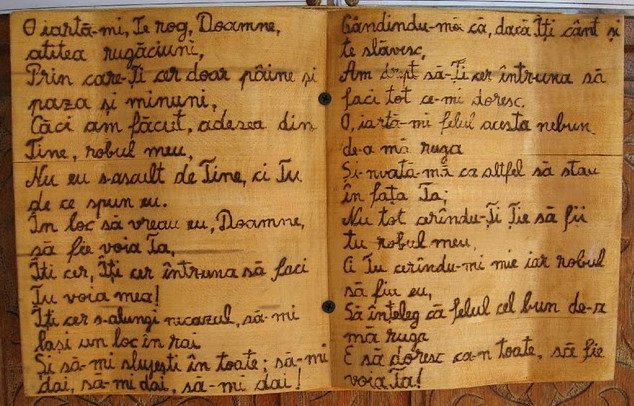 O iartă-mi, Te rog, Doamne,
atîtea rugăciuni,
Prin care-Ți cer doar pâine și
paza și minuni,
Căci am făcut, adesea din
Tine, robul meu,
Nu eu s-ascult de Tine, ci Tu
de ce spun eu.
În loc să vreau eu, Doamne,
să fie voia Ta,
Îți cer, Îți cer întruna să faci
Tu voia mea!
Îți cer s-alungi necazul, să-mi
lași un loc în rai
Și să-mi slujești în toate; să-mi
dai, să-mi dai, să-mi dai!
Gândindu-mă că, dacă Îți cânt și
te slăvesc,
Am drept să-Ți cer într-una să
faci tot ce-mi doresc.
O, iartă-mi felul acesta nebun
de-a mă ruga
Și-nvată-mă ca altfel să stau
în fața Ta;
Nu tot cerîndu-Ți Ție să fii
tu robul meu,
Ci Tu cerîndu-mi mie iar robul
să fiu eu,
Să înțeleg că felul cel bun de-a
mă ruga
E să doresc ca-n toate, să fie
voia Ta!